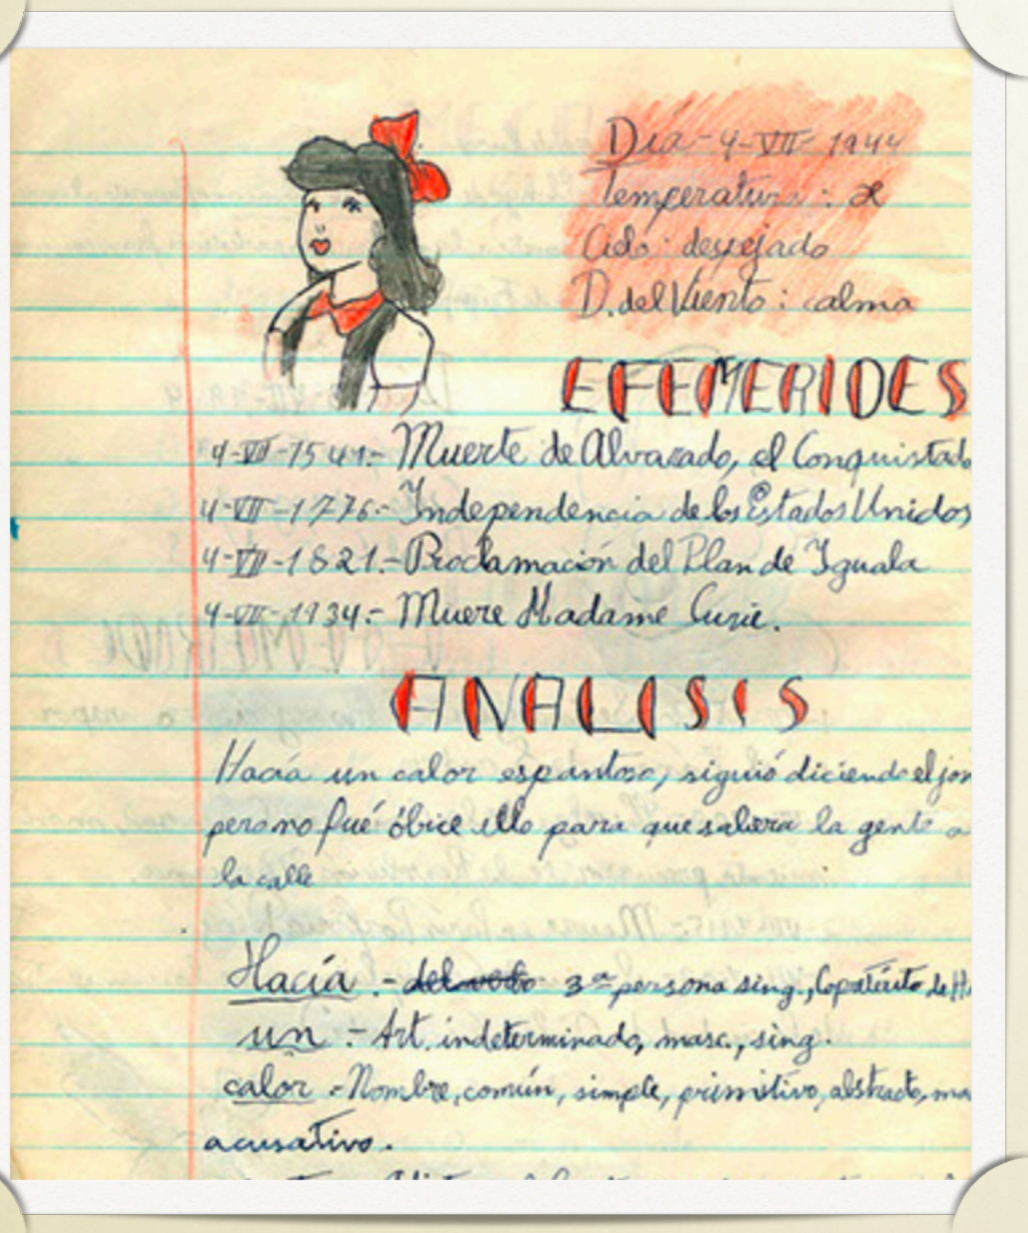 Día-4-VII-1944
Temperatura:
Cielo: despejado
D. del Viento: calma
EFEMERIDES
4-VII-1541.- Muerte de Alvarado, el Conquistad
4-VII-1776.- Independencia de los Estados Unidos
4-VII-1821.- Proclamación del Plan de Iguala
4-VII-1934.- Muere Madame Curie.
ANALISIS
Hacía un calor espantoso, siguió diciendo el jor
pero no fué óbice ello para que saliera la gente a
la calle
Hacía.- 3ª persona sing., de H
un.- Art. indeterminado, masc., sing.
calor = Nombre, común, simple, primitivo, abstracto, ma
acusativo.